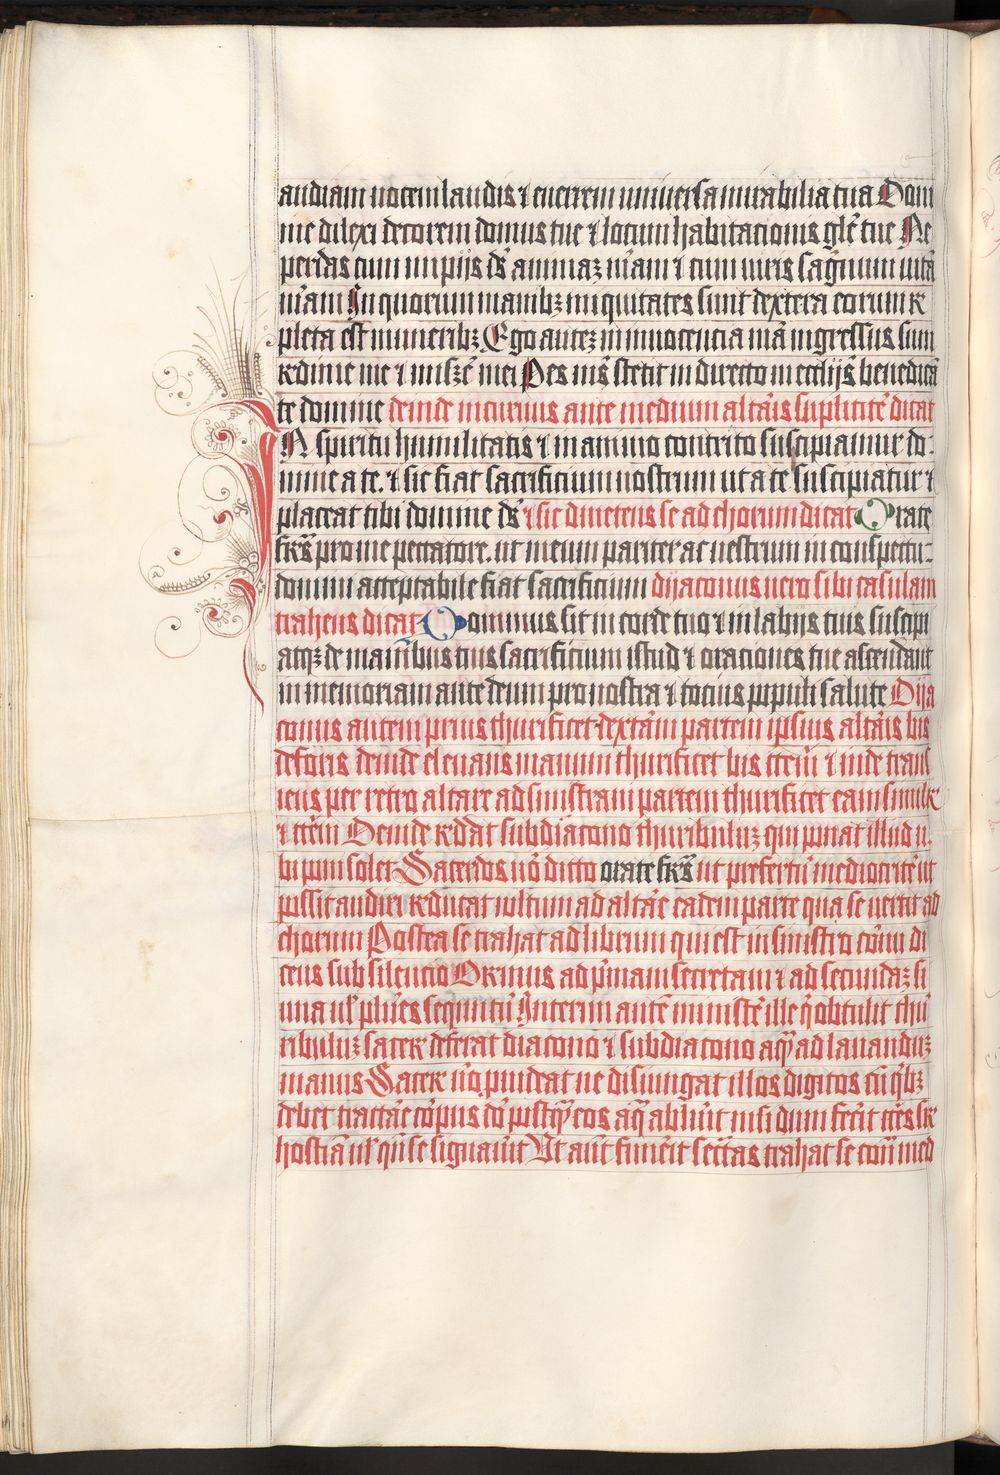 audiam uocem laudis ⁊ enerrem uniuersa mirabilia tua Domi
ne dilexi decorem domus tue ⁊ locum habitacionis glē tue Ne
perdas cum impijs ds̄ animaz m̄am ⁊ cum uiris sāguinum uitā
m̄am In quorum manibꝫ iniquitates sunt dextera eorum re
pleta est muneribꝫ Ego autez in innocencia mā ingressus sum
redime me ⁊ misē mei Pes ms̄ stetit in directo in ecclijs̄ benedicā
te domine deinde incuruus ante medium altār̄is supliciter̄ dicat
IN spiritu humilitatis ⁊ in animo contrito suscipiamur do-
mine a te. ⁊ sic fiat sacrificium nostrum ut a te suscipiatur ⁊
placeat tibi domine ds̄ ⁊ sic diuertens se ad chorum dicat Orate
frēs pro me peccatore. ut meum pariter ac uestrum in conspectu-
domini acceptabile fiat sacrificium dijaconus uero sibi casulam
trahens dicat Dominus sit in corde tuo ⁊ in labijs tuis suscipi
atqꝫ de manībus tuis sacrificium istud ⁊ oraciones tue ascendant
in memoriam ante deum pro nostra ⁊ tocius populi salute Dija
conus autem prius thurificet dextām partem ipsius altār̄is bis
deforis deinde eleuans manum thurificet bis iter̄ū ⁊ inde trans
iens per retro altare ad sinistram partem thurificet eam simile
⁊ iter̄ū Deinde reddat subdiacono thuribuluꝫ qui ponat illud u
bi poni solet Sacerdos uō dicto orate frēs ut prefertur̄ mediocriter̄ ut
possit audiri reducat uultum ad altāre eadem parte qua se uertit ad
chorum Postea se trahat ad librum qui est in sinistro cōnu di
cens sub silencio Oremus ad pͥmam secretam ⁊ ad secundaꝫ si
una ul̄ plūes sequntū Interim autē ministēr ille q̄ obtulit thu
ribuluꝫ sacer deferat diacono ⁊ subdiacono aqͣ ad lauanduꝫ
manus Sacer uō prouideat ne disiungat illos digitos cū qͥbꝫ
debet tractāe corpus dn̄i postqͣ eos aqͣ abluit nisi dum fecit
hostiā ul̄ qn̄ se signauit Ut aut̄ finier̄it secretas trahat se coram med